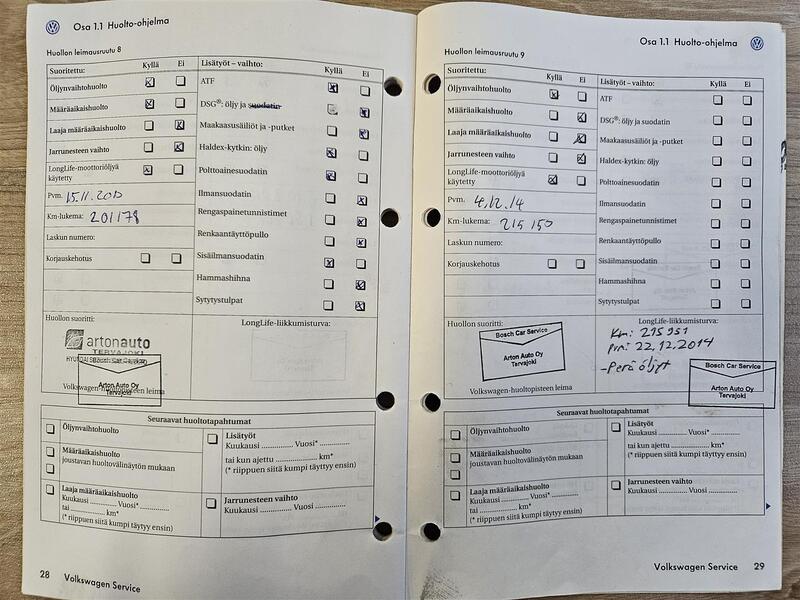 Osa 1.1 Huolto-ohjelma
Huollon leimausruutu 8
Suoritettu: Kyllä Ei
Öljynvaihtohuolto
Määräaikaishuolto
Laaja määräaikaishuolto
Jarrunesteen vaihto
LongLife-moottoriöljyä
käytetty
Pvm.
Km-lukema: 201178
Laskun numero:
Korjauskehotus
Lisätyöt – vaihto: Kyllä Ei
ATF
DSG®: öljy ja suodatin
Maakaasusäiliöt ja -putket
Haldex-kytkin: öljy
Polttoainesuodatin
Ilmansuodatin
Rengaspainetunnistimet
Renkaantäyttöpullo
Sisäilmansuodatin
Hammashihna
Sytytystulpat
Huollon suoritti:
artonauto
TERVAJOKI
Bosch Car Service
Arton Auto Oy
Tervajoki
Volkswagen-huoltopisteen leima
LongLife-liikkumisturva:
Seuraavat huoltotapahtumat
Öljynvaihtohuolto
Määräaikaishuolto
joustavan huoltovälinäytön mukaan
Laaja määräaikaishuolto
Kuukausi .............. Vuosi* ..............
tai .............. km*
(* riippuen siitä kumpi täytyy ensin)
Lisätyöt
Kuukausi .............. Vuosi* ..............
tai kun ajettu .............. km*
(* riippuen siitä kumpi täyttyy ensin)
Jarrunesteen vaihto
Kuukausi .............. Vuosi ..............
28 Volkswagen Service
Osa 1.1 Huolto-ohjelma
Huollon leimausruutu 9
Suoritettu: Kyllä Ei
Öljynvaihtohuolto
Määräaikaishuolto
Laaja määräaikaishuolto
Jarrunesteen vaihto
LongLife-moottoriöljyä
käytetty
Pvm. 4.12.14
Km-lukema: 215 150
Laskun numero:
Korjauskehotus
Lisätyöt – vaihto: Kyllä Ei
ATF
DSG®: öljy ja suodatin
Maakaasusäiliöt ja -putket
Haldex-kytkin: öljy
Polttoainesuodatin
Ilmansuodatin
Rengaspainetunnistimet
Renkaantäyttöpullo
Sisäilmansuodatin
Hammashihna
Sytytystulpat
Huollon suoritti:
Bosch Car Service
Arton Auto Oy
Tervajoki
Volkswagen-huoltopisteen leima
LongLife-liikkumisturva:
Km: 215951
pvm: 22.12.2014
-Perä öljyt
Bosch Car Service
Arton Auto Oy
Tervajoki
Seuraavat huoltotapahtumat
Öljynvaihtohuolto
Määräaikaishuolto
joustavan huoltovälinäytön mukaan
Laaja määräaikaishuolto
Kuukausi .............. Vuosi* ..............
tai .............. km*
(* riippuen siitä kumpi täytyy ensin)
Lisätyöt
Kuukausi .............. Vuosi* ..............
tai kun ajettu .............. km*
(* riippuen siitä kumpi täyttyy ensin)
Jarrunesteen vaihto
Kuukausi .............. Vuosi ..............
Volkswagen Service 29